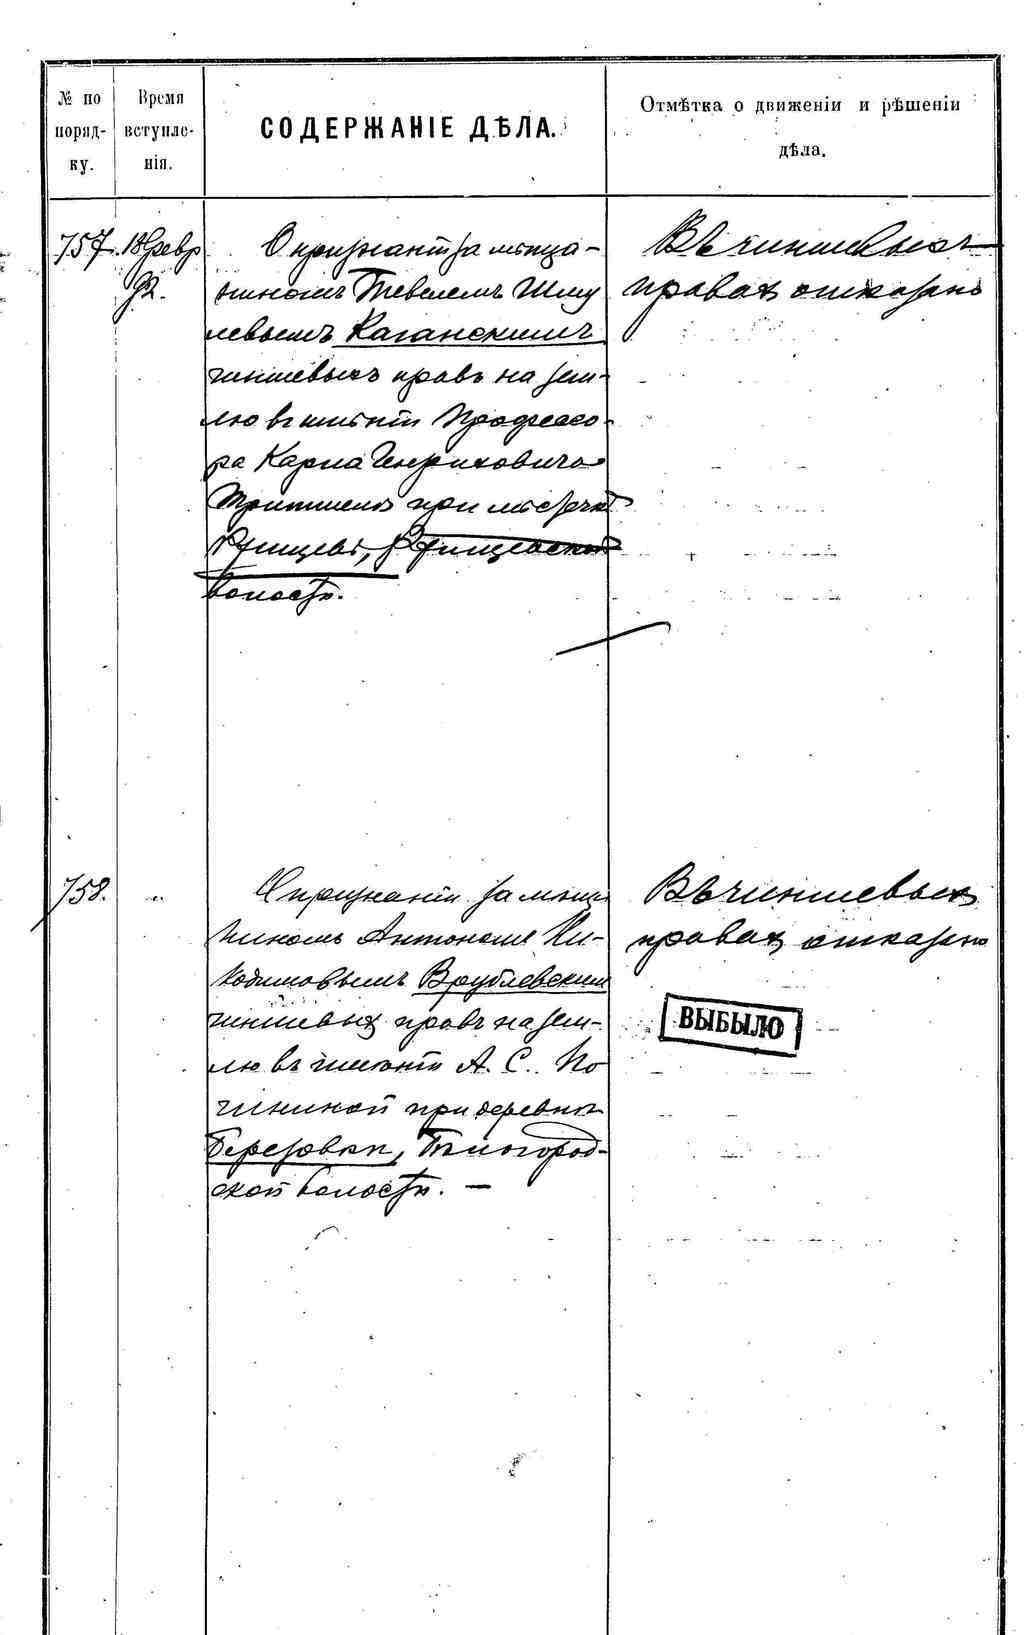 № по поряд- ку.
Время вступле- нія.
СОДЕРЖАНІЕ ДѢЛА.
Отмѣтка о движеніи и рѣшеніи дѣла.
757. 18 февр 92.
О признаніи за мѣща-
ниномъ Тевелемъ Шму
левымъ Каганскимъ
чиншевыхъ правъ на зем-
лю въ имѣніи Професо-
ра Карла Генриховича
при мѣстечкѣ
Ржищевѣ, Ржищевской
волости.
Въ чиншевыхъ
правах отказано
758. „
О признаніи за мѣща
ниномъ Антономъ Ни-
кодимовымъ Врублевским
чиншевых правъ на зем-
лю въ имѣніи А. С. По
чининой при деревнѣ
Березовкѣ, Бѣлогород-
ской волости. —
Въ чиншевых
правах отказано
ВЫБЫЛО